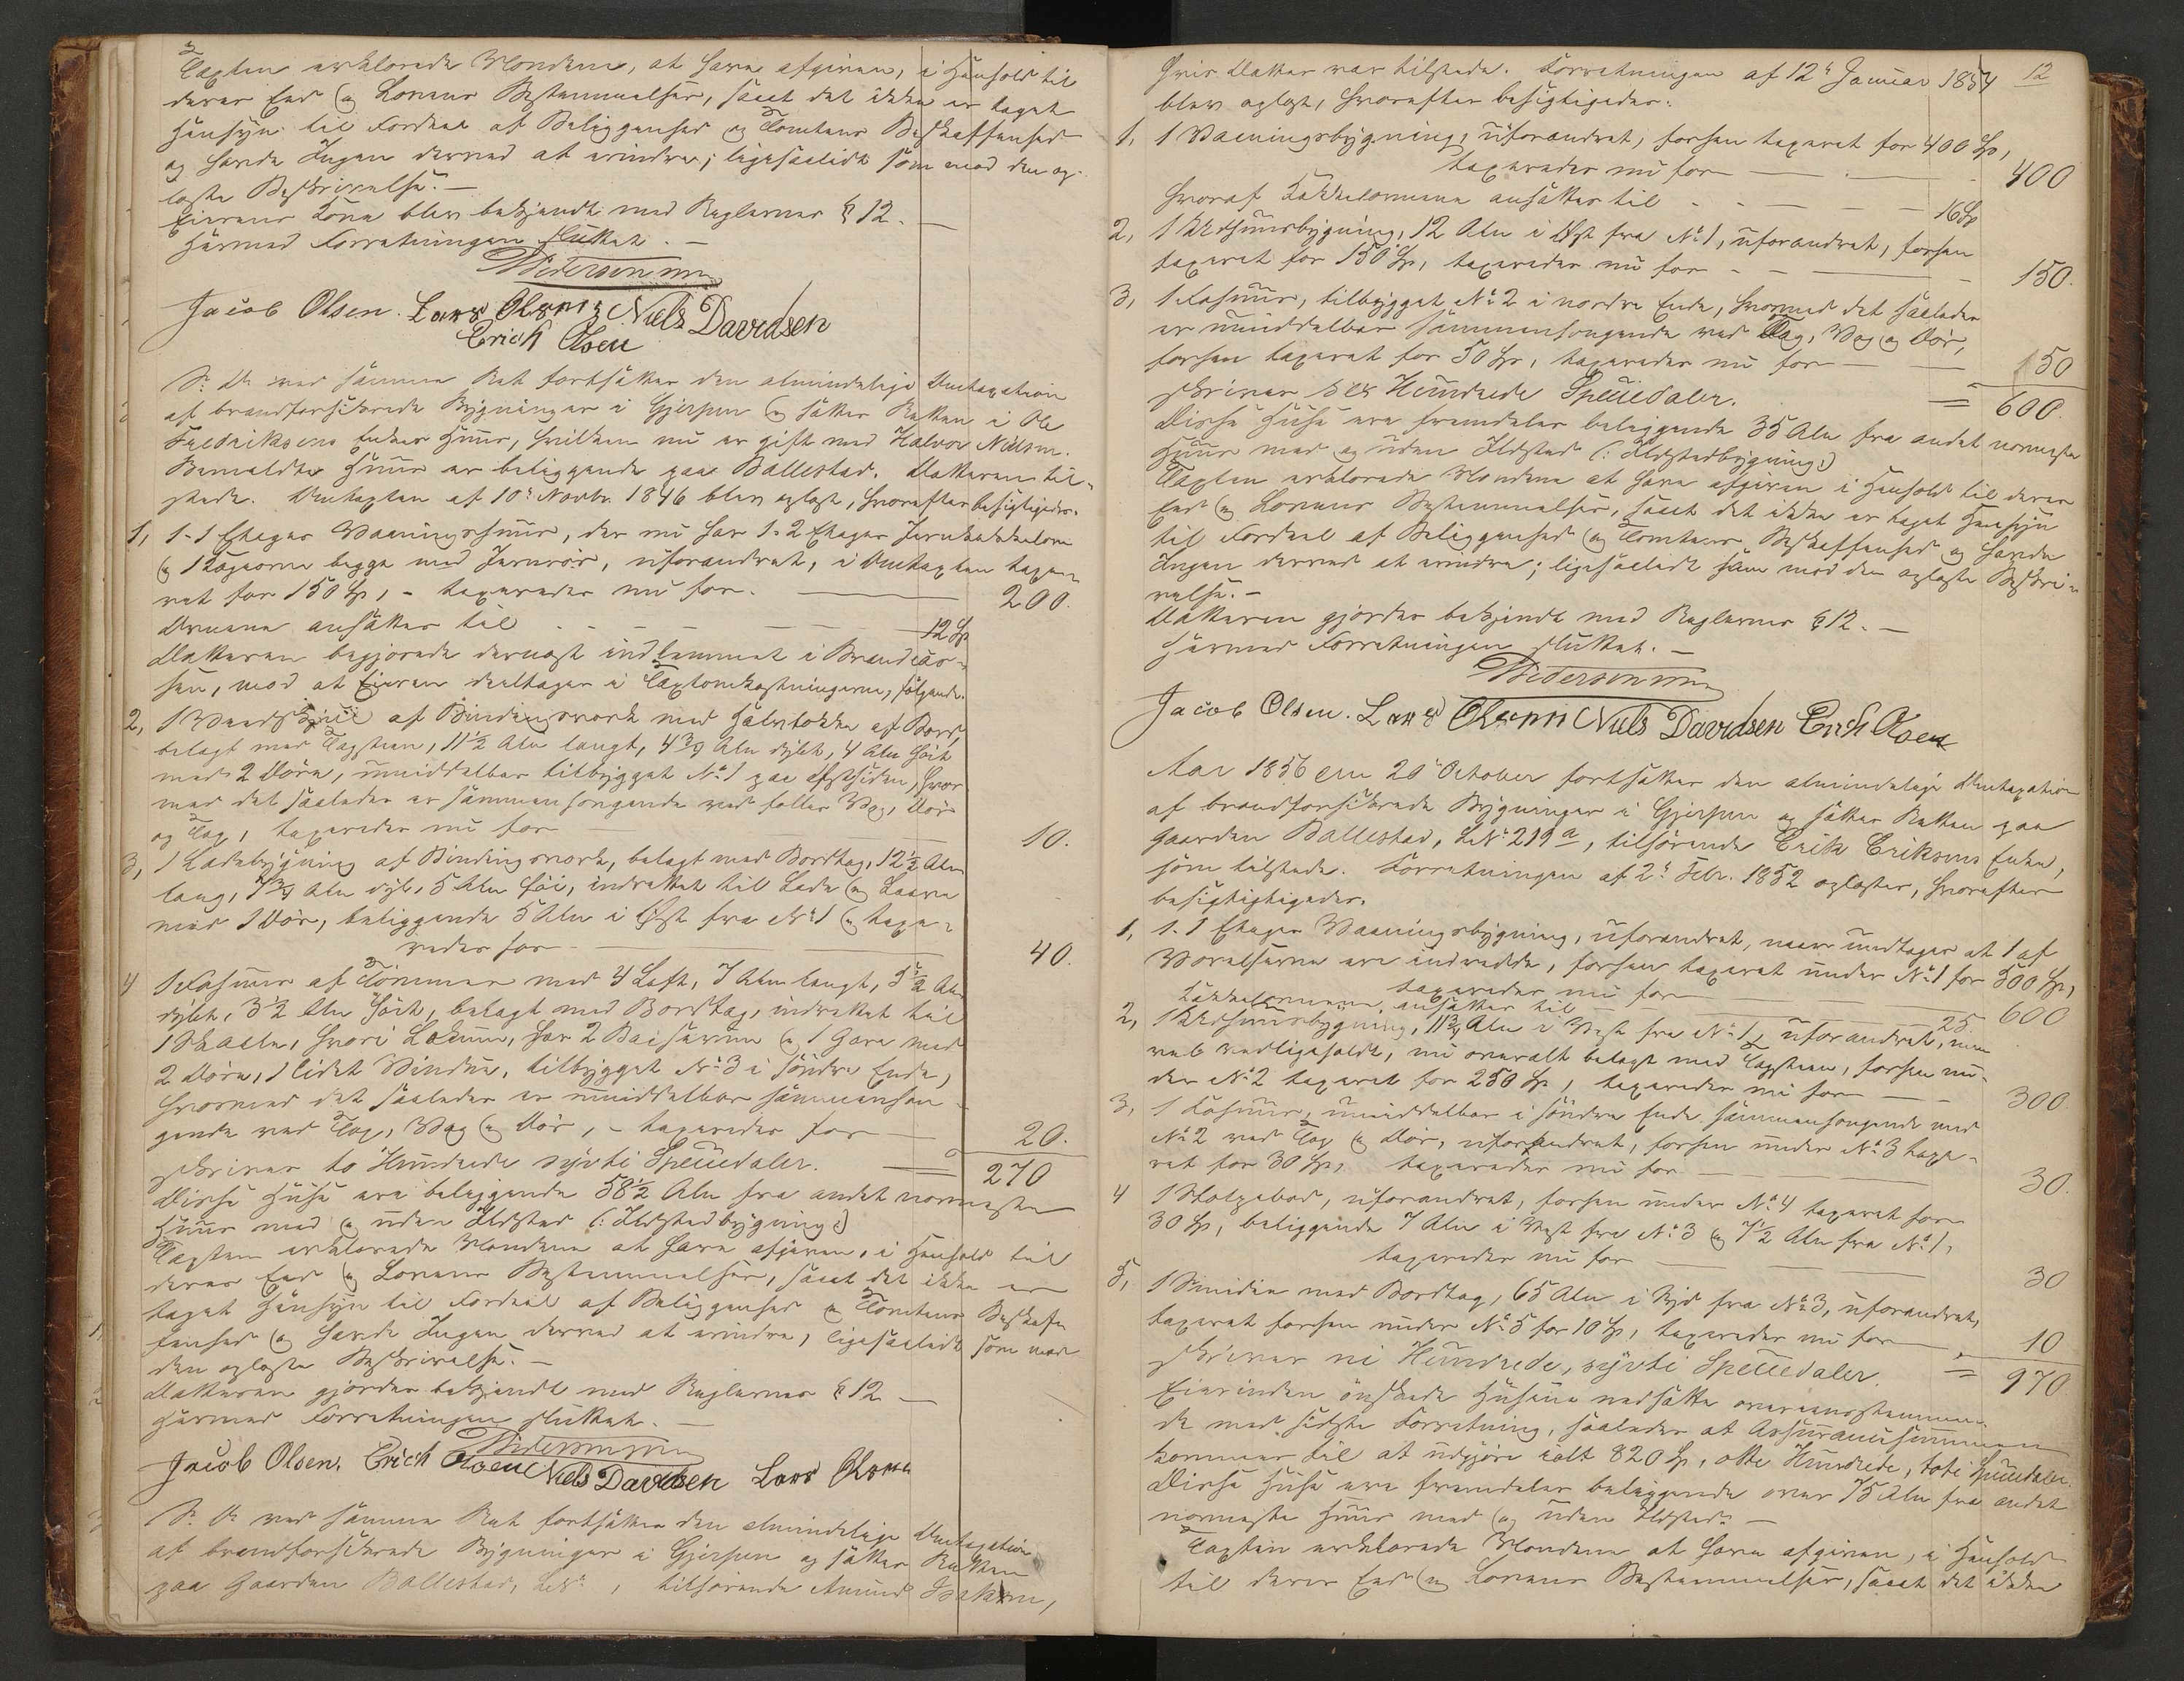 Taxten erklærede Mændene, at have afgiven, i Henhold til
deres Eed og Lovens Bestemmelser, samt det ikke er taget
Hensyn til Fordeel af Beliggenhed og Tomtens Beskaffenhed
og havde Ingen derved at erindre; ligesaalidt som mod den op-
læste Beskrivelse. —
Eierens Kone blev bekjendt med Reglernes § 12. —
Hermed Forretningen sluttet. —
Jacob Olsen. Lars Niels Davidsen
Erich Olsen
Ao. Do. ved samme Ret fortsættes den almindelige Omtaxation
af brandforsikrede Bygninger i Gjerpen og sættes Retten i Ole
Fredriksens Enkes Huus, hvilken nu er gift med Halvor Nielsen.
Bemeldte Huus er beliggende paa Ballestad. Datteren til-
stede. Omtaxten af 10de Novbr. 1846 blev oplæst, hvorefter besigtigedes.
1, 1-1 Etages Vaaningshuus, der nu har 1-2 Etages Jernkakkelovn
og 1 Kogeovn begge med Jernrør, uforandret, i Omtaxten taxe-
ret for 150 Sp, - taxeredes nu for. — 200.
Ovnene ansættes til - - - — — 12 Sp
Datteren begjærede dernæst indlemmet i Brandcas-
sen, mod at Eieren deeltager i Taxtomkostningerne, følgende.
2, 1 Vedskjul af Bindingsværk med Halvtække af Bord,
belagt med Tagsteen, 11½ Alen langt, 4¾ Alen dybt, 4 Alen høit
med 2 Døre, umiddelbar tilbygget No. 1 paa Østsiden, hvor
med det saaledes er sammenhængende ved fælles Væg, Dør
og Tag, taxeredes nu for — 10.
3, 1 Ladebygning af Bindingsværk, belagt med Bordtag, 12½ Alen
lang, 7¾ Alen dyb, 5 Alen høi, indrettet til Lade og Laave
med 1 Dør, beliggende 5 Alen i Øst fra No. 1 og taxe-
redes for — 40.
4 1 Fæhuus af Tømmer med 4 Laft, 7 Alen langt, 5½ Alen
dybt, 3½ Alen høit, belagt med Bordtag, indrettet til
1 hvori har 2 Baaserum og 1 med
2 Døre, 1 lidet Vindue, tilbygget No. 3 i søndre Ende,
hvormed det saaledes er umiddelbar sammenhæn-
gende ved Tag, Væg og Dør, - taxeredes for — 20.
skriver to Hundrede syvti Speciedaler. = 270
Disse Huse ere beliggende 58½ Alen fra andet nærmeste
Huus med og uden Ildsted (: Ildstedbygning :)
Taxten erklærede Mændene at have afgiven, i Henhold til
deres Eed og Lovens Bestemmelser, samt det ikke er
taget Hensyn til Fordeel af Beliggenhed og Tomtens Beskaf-
fenhed og havde Ingen derved at erindre, ligesaalidt som mod
den oplæste Beskrivelse. —
Datteren gjordes bekjendt med Reglernes § 12 —
Hermed Forretningen sluttet. —
Jacob Olsen. Erich Olsen Niels Davidsen Lars
Ao. Do. ved samme Ret fortsættes den almindelige Omtaxation
af brandforsikrede Bygninger i Gjerpen og sættes Retten
paa Gaarden Ballestad, LNo. , tilhørende Amund
12
hvis Datter var tilstede. Forretningen af 12te Januar 1854
blev oplæst, hvorefter besigtigedes.
1, 1 Vaaningsbygning, uforandret, forhen taxeret for 400 Sp,
taxeredes nu for — 400
hvoraf Kakkelovnene ansættes til - - — — 16 Sp
2, 1 Udhuusbygning, 12 Alen i Øst fra No. 1, uforandret, forhen
taxeret for 150 Sp, taxeredes nu for - - — 150.
3, 1 Fæhuus, tilbygget No. 2 i nordre Ende, hvormed det saaledes
er umiddelbar sammenhængende ved Tag, Væg og Dør,
forhen taxeret for 50 Sp, taxeredes nu for — 50
skriver sex Hundrede Speciedaler. = 600.
Disse Huse ere fremdeles beliggende 35 Alen fra andet nærmeste
Huus med og uden Ildsted (: Ildstedbygning :)
Taxten erklærede Mændene at have afgiven i Henhold til deres
Eed og Lovens Bestemmelser, samt det ikke er taget Hensyn
til Fordeel af Beliggenhed og Tomtens Beskaffenhed og havde
Ingen derved at erindre; ligesaalidt som mod den oplæste Beskri-
velse. —
Datteren gjordes bekjendt med Reglernes § 12. —
Hermed Forretningen sluttet. —
Jacob Olsen. Lars Niels Davidsen Erich Olsen
Aar 1856 den 20de October fortsættes den almindelige Omtaxation
af brandforsikrede Bygninger i Gjerpen og sættes Retten paa
Gaarden Ballestad, LNo. 219a, tilhørende Erik Eriksens Enke,
som tilstede. Forretningen af 2de Febr. 1852 oplæstes, hvorefter
besigtigtigedes.
1, 1-1 Etages Vaaningsbygning, uforandret, naar undtages at 1 af
Værelserne ere indredde, forhen taxeret under No. 1 for 500 Sp,
taxeredes nu for — 600
Kakkelovnene ansættes til — 25.
2, 1 Udhuusbygning, 11¾ Alen i Vest fra No. 1, uforandret, men
vel vedligeholdt, nu overalt belagt med Tagsteen, forhen un-
der No. 2 taxeret for 250 Sp, taxeredes nu for — — 300
3, 1 Fæhuus, umiddelbar i søndre Ende sammenhængende med
No. 2 ved Tag og Dør, uforandret, forhen under No. 3 taxe-
ret for 30 Sp, taxeredes nu for — 30.
4 1 Stolpebod, uforandret, forhen under No. 4 taxeret for
30 Sp, beliggende 7 Alen i Vest fra No. 3 og 7½ Alen fra No. 1,
taxeredes nu for — 30
5, 1 Smidie med Bordtag, 65 Alen i Syd fra No. 3, uforandret,
taxeret forhen under No. 5 for 10 Sp, taxeredes nu for — 10
skriver ni Hundrede, syvti Speciedaler. = 970
Eierinden ønskede Husene nedsatte overeensstemmen-
de med sidste Forretning, saaledes at Assurancesummen
kommer til at udgjøre ialt 820 Sp, otte Hundrede, tyve Speciedaler.
Disse Huse ere fremdeles beliggende over 75 Alen fra andet
nærmeste Huus med og uden Ildsted. —
Taxten erklærede Mændene at have afgiven, i Henhold
til deres Eed og Lovens Bestemmelser, samt det ikke